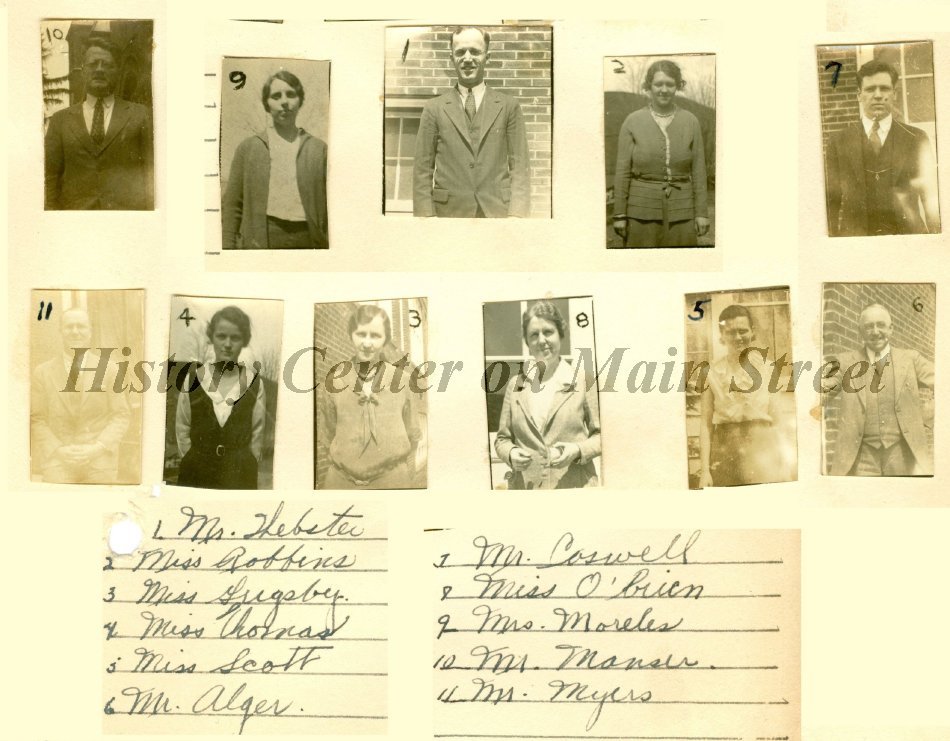 10
9
1
2
7
11
4
3
8
5
6
History Center on Main Street
1. Mr. Webster
2 Miss Robbins
3 Miss Grigsby.
4 Miss Thomas
5 Miss Scott
6 Mr. Alger.
7 Mr. Coswell
8 Miss O'brien
9 Mrs. Moreles
10 Mr. Manser.
11 Mr. Myers